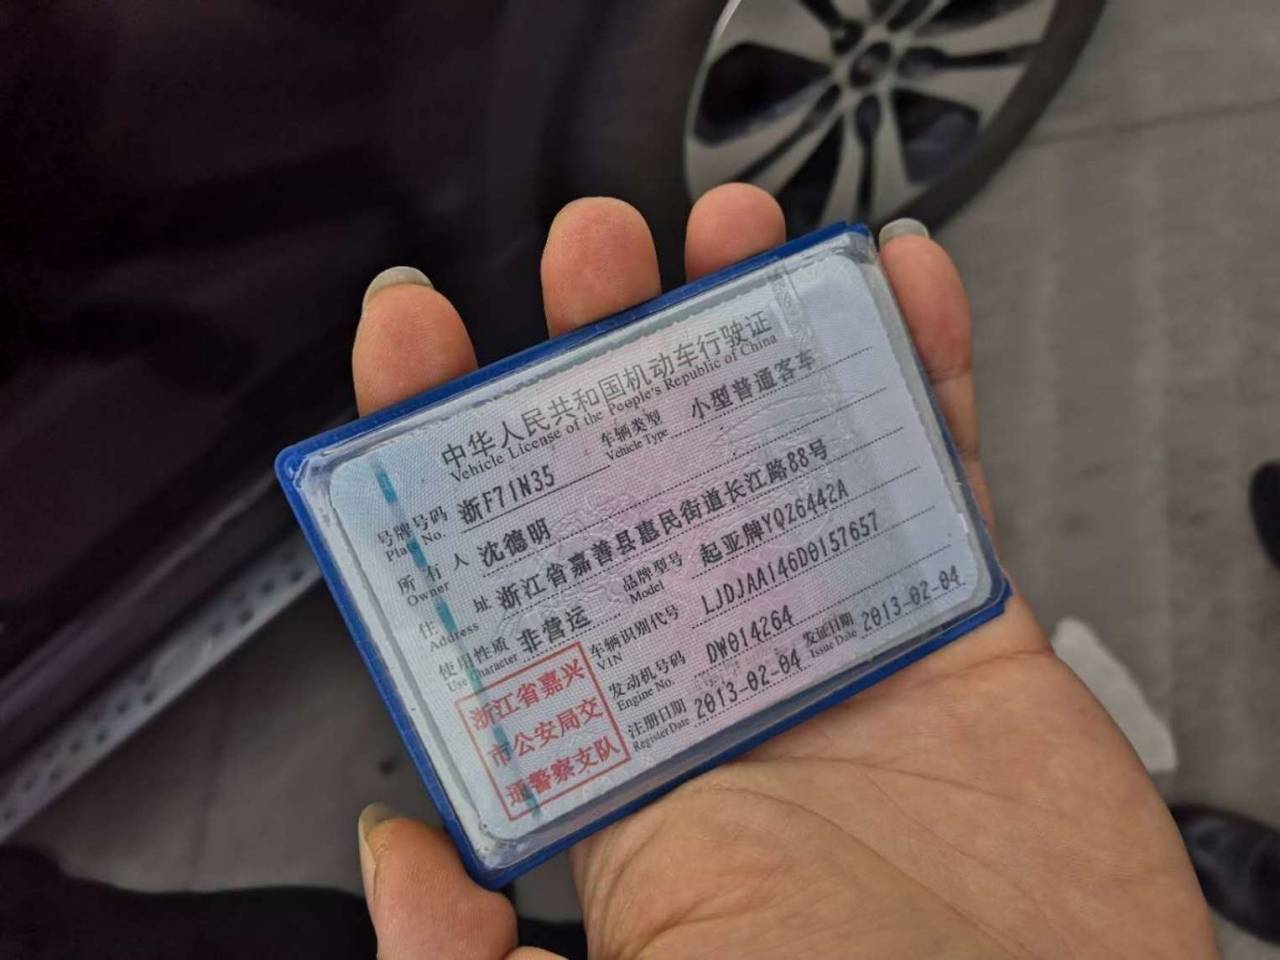 中华人民共和国机动车行驶证
Vehicle License of the People's Republic of China
号牌号码 浙F71N35 车辆类型 小型普通客车
Plate No. Vehicle Type
所有人 沈德明
Owner
住址 浙江省嘉善县惠民街道长江路88号
Address
使用性质 非营运 品牌型号 起亚牌YQZ6442A
Use Character Model
车辆识别代号 LJDJAA146D0157657
VIN
发动机号码 DW014264
Engine No.
注册日期 2013-02-04 发证日期 2013-02-04
Register Date Issue Date
浙江省嘉兴
市公安局交
通警察支队